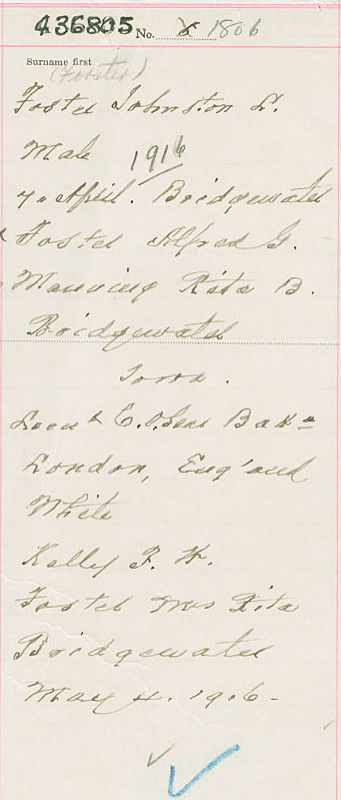 436805 No. 1806
Surname first
(Forster)
Foster Johnston L.
Male 1916
7. April. Bridgewater
Foster Alfred G.
Manning Rita B.
Bridgewater
Town.
Lieut E. O.Seas Batn
London, England
White
Kelly F. W.
Foster Mrs Rita
Bridgewater
May 4. 1916-